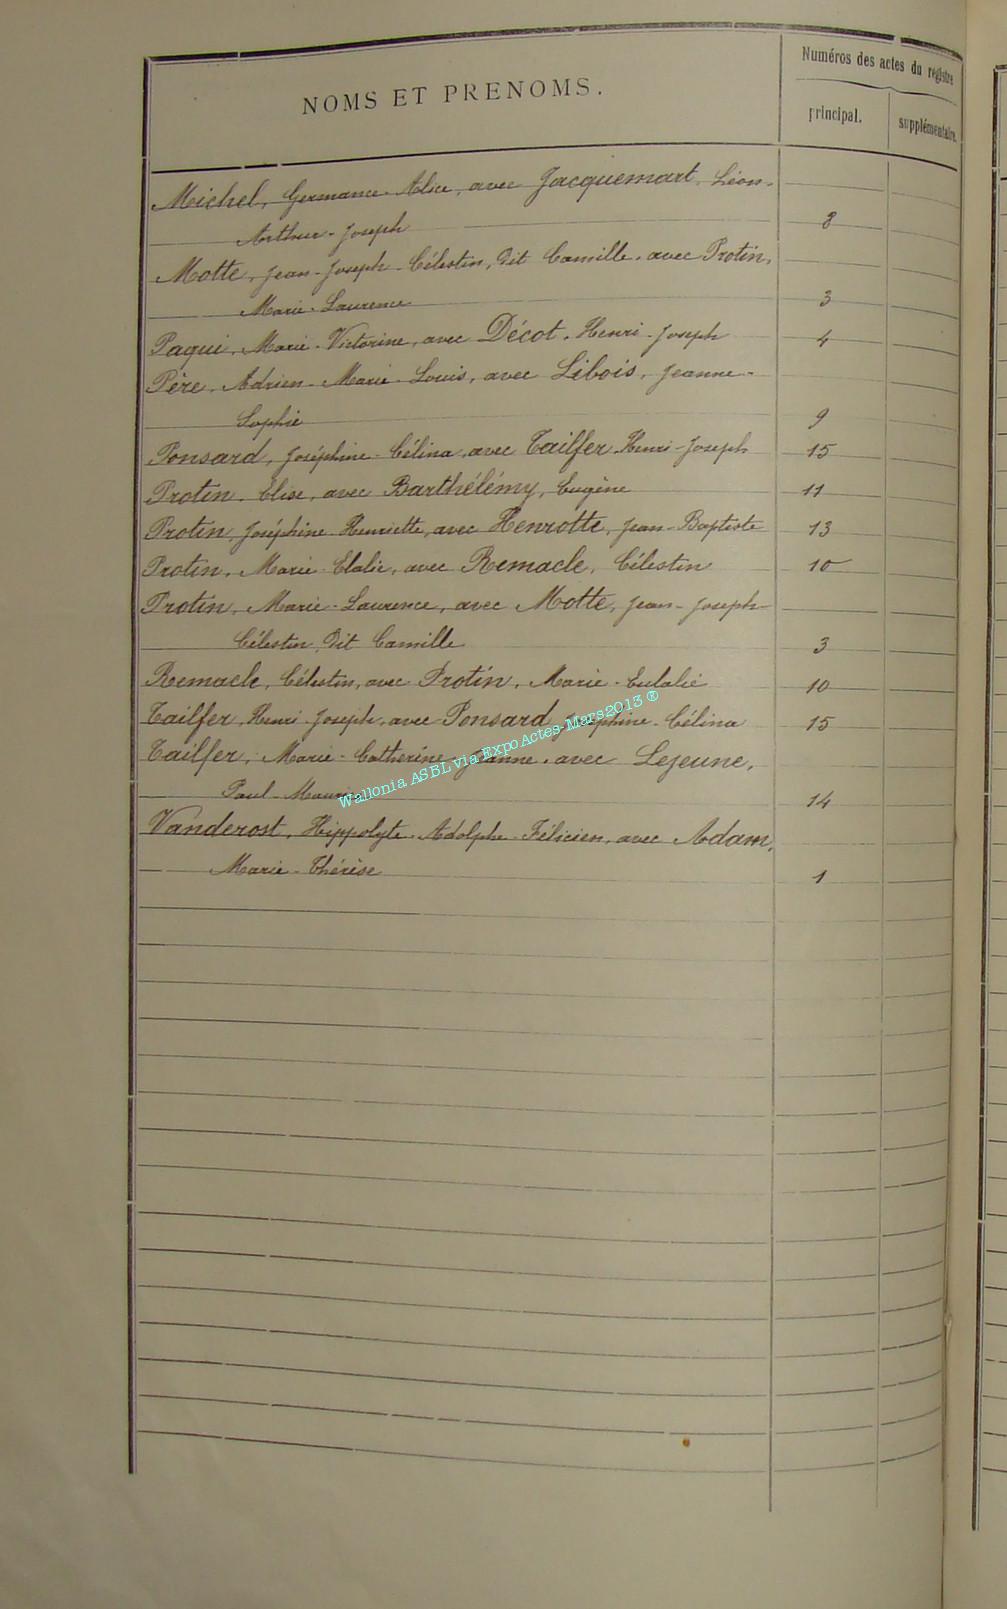 Numéros des actes du registre
NOMS ET PRENOMS.
principal. supplémentaire.
Michel, Germance-Alice, avec Jacquemart, Léon-
Arthur-Joseph 8
Motte, Jean-Joseph-Célestin, dit Camille, avec Protin,
Marie-Laurence 3
Paqui, Marie-Victorine, avec Décot, Henri-Joseph 4
Père, Adrien-Marie-Louis, avec Libois, Jeanne-
Sophie 9
Ponsard, Joséphine-Célina, avec Tailfer, Henri-Joseph 15
Protin, Elise, avec Barthélémy, Eugène 11
Protin, Joséphine-Henriette, avec Henrotte, Jean-Baptiste 13
Protin, Marie-Elalie, avec Remacle, Célestin 10
Protin, Marie-Laurence, avec Motte, Jean-Joseph-
Célestin, dit Camille 3
Remacle, Célestin, avec Protin, Marie-Eulalie 10
Tailfer, Henri-Joseph, avec Ponsard, Joséphine-Célina 15
Tailfer, Marie-Catherine-Jeanne, avec Lejeune,
Paul-Maurice 14
Vanderost, Hippolyte-Adolphe-Félicien, avec Adam,
Marie-Thérèse 1
Wallonia ASBL via ExpoActes-Mars2013 ®